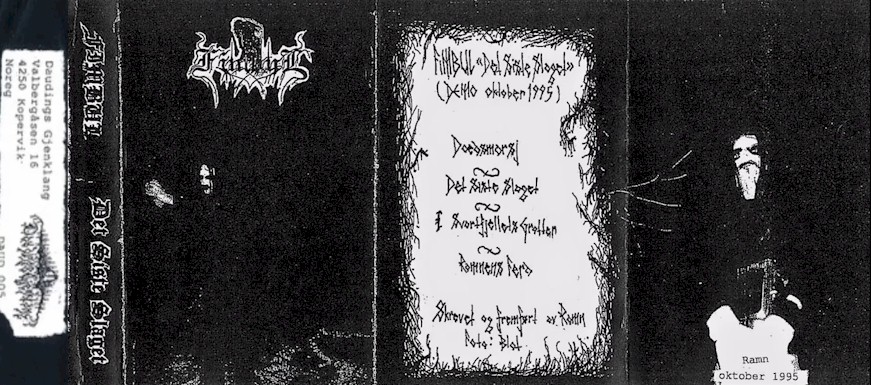 Daudings Gjenklang
Valbergåsen 16
4250 Kopervik
Noreg
DAUD 005
FIMBUL
Det Siste Slaget
Fimbul
FIMBUL «Det Siste Slaget»
(DEMO oktober 1995)
Doedsmarsj
Det Siste Slaget
I Svartfjellets Grotter
Ramnens Ferd
Skrevet og fremført av Ramn
Foto: Blot
Ramn
oktober 1995